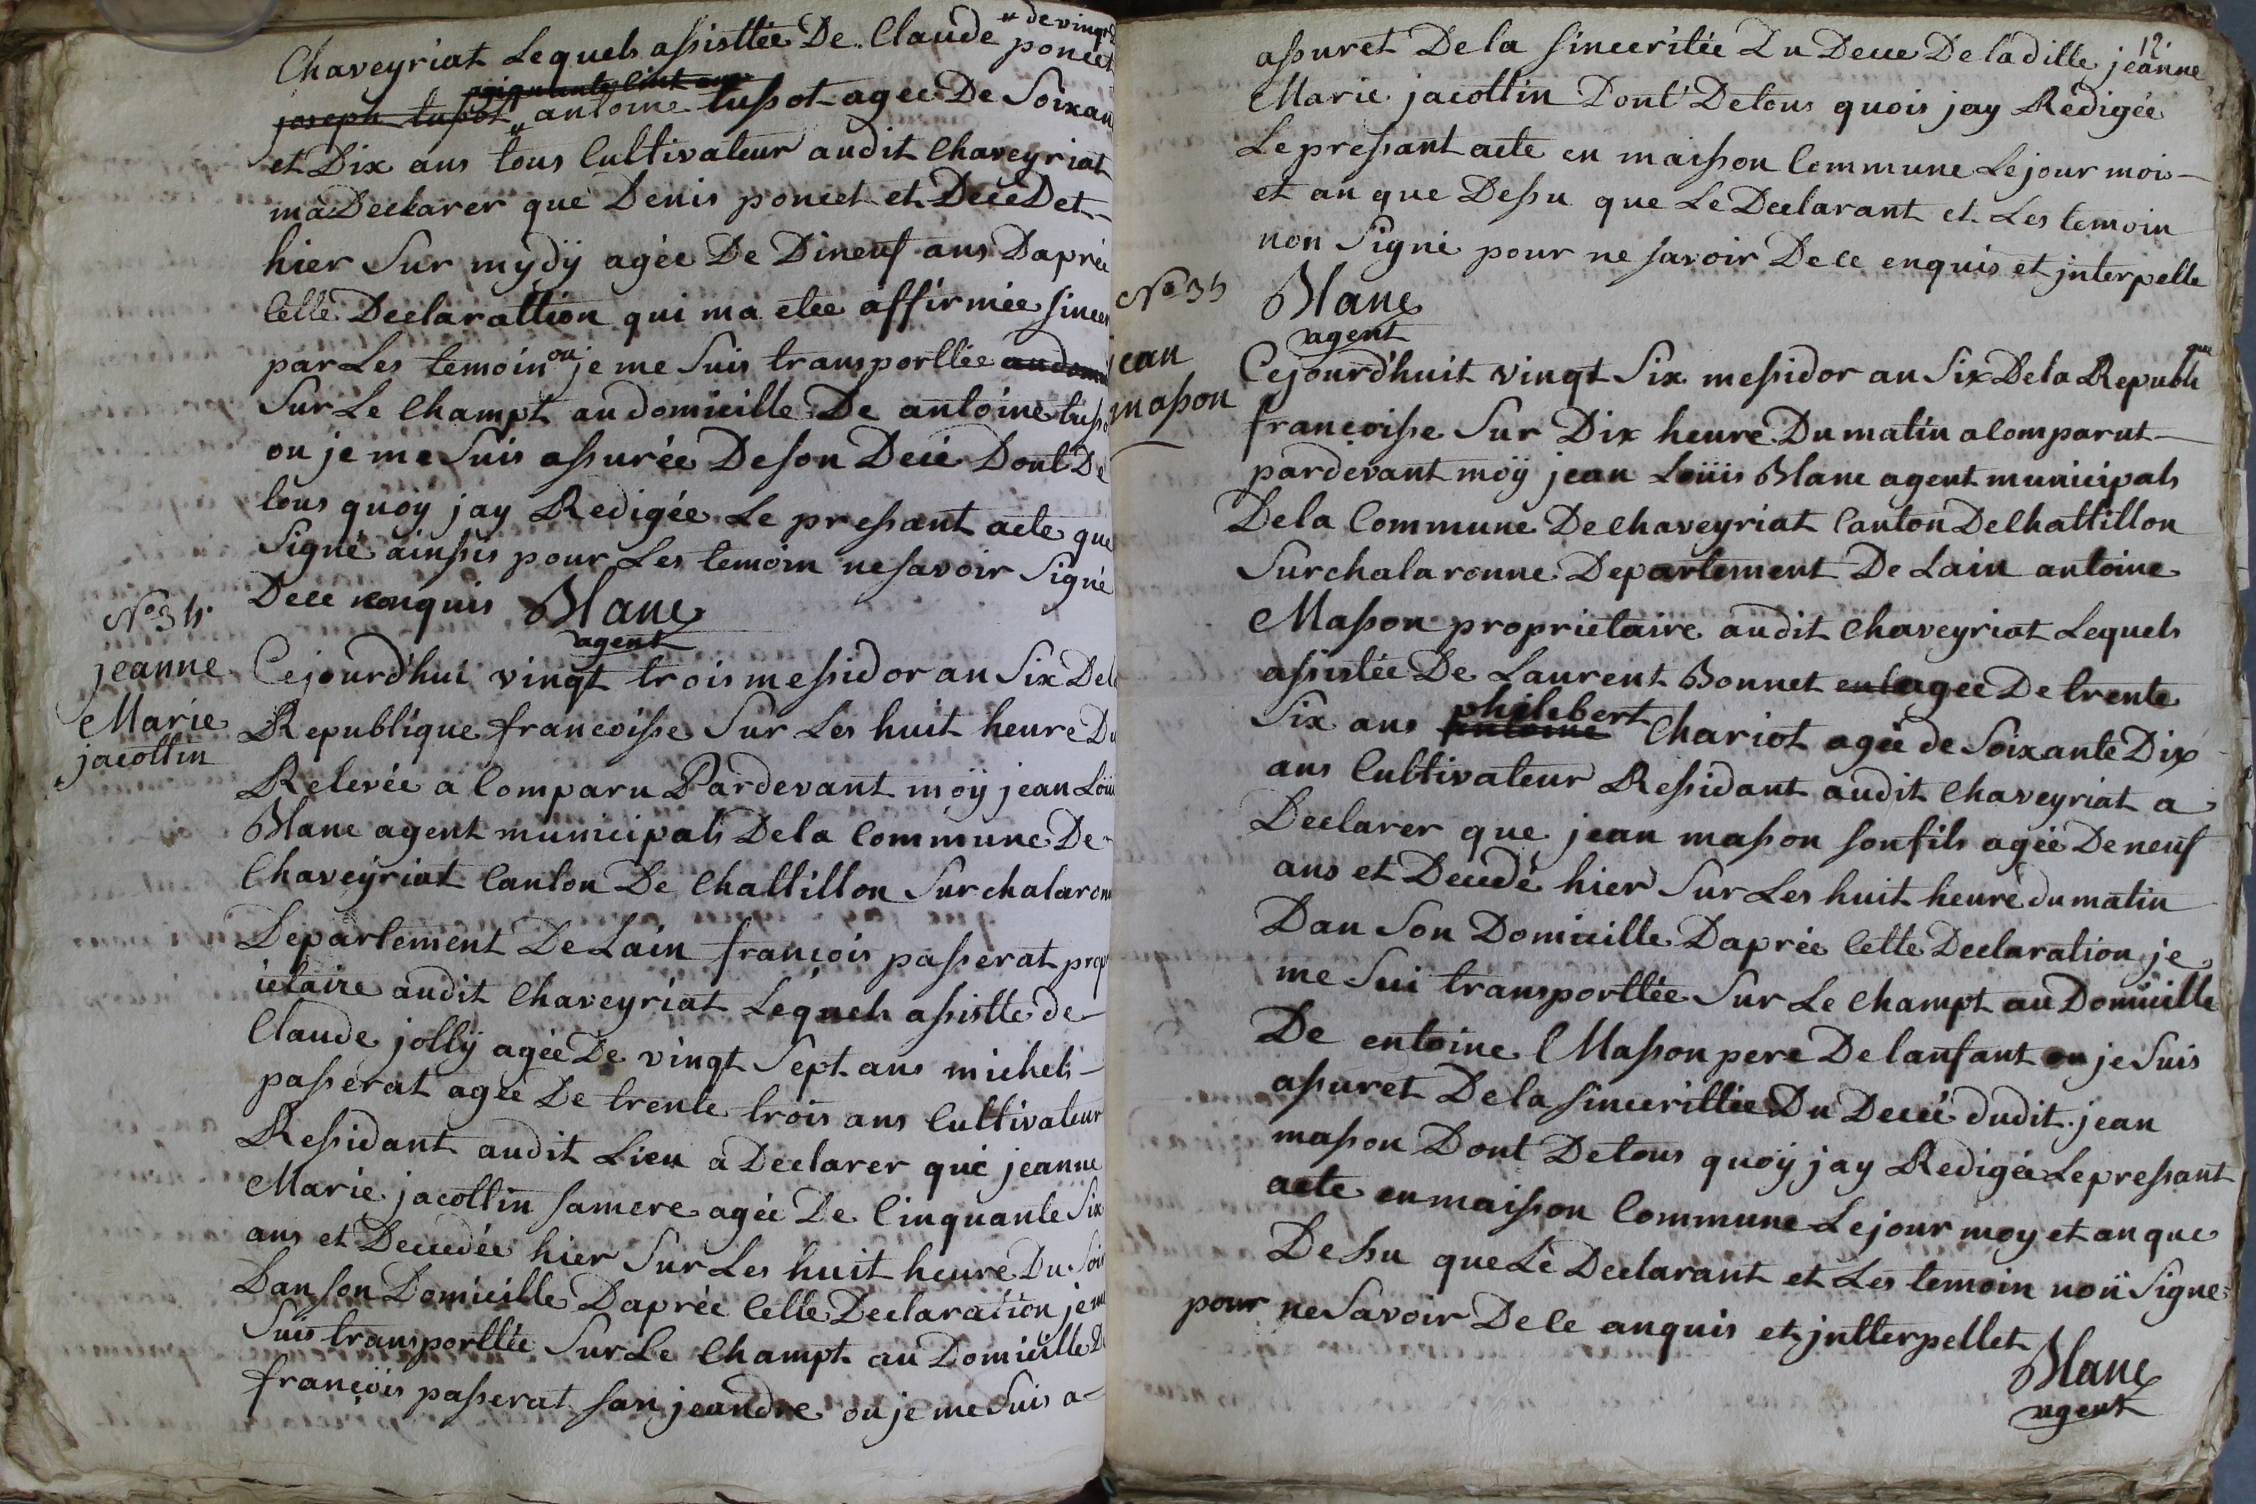 Chaveyriat Lequels assisttée De Claude poncet
" de vingt
joseph tussot " antoine tussot agée De Soixan
et Dix ans tous Cultivateur audit Chaveyriat
ma Declarer que Denis poncet et DeceDet
hier Sur mydÿ agée De Dineuf ans Daprée
Cette Declarattion qui ma etee affirmée sincer
par Les temoin ou je me Suis transporttée au domi
Sur Le Champt au domicille De antoine tusso
ou je me Suis assurée De son Decé Dont De
tous quoy jay Redigée Le pressant acte que
Signé ainssis pour Les temoin ne savoir Signé
Dece enquis Blanc
agent
No 34
jeanne
Marie
jacottin
Cejourd'hui vingt trois messidor an Six Dela
Republique francoisse Sur Les huit heure Du
Relevée a Comparu Pardevant moÿ jean Loüi
Blanc agent municipals Dela Commune De
Chaveyriat Canton De Chattillon Surchalaron
Departement De Lain françois passerat prop
ietaire audit Chaveyriat Lequels assistte de
Claude jollÿ agée De vingt Sept ans michels
passerat agée De trente trois ans Cultivateur
Ressidant audit Lieu a Declarer que jeanne
Marie jacottin sa mere agée De Cinquante Six
ans et Decedée hier Sur Les huit heure Du Soir
Dan son Domicille Daprée Cette Declaration je me
Suis transporttée Sur Le Champt au Domicille De
françois passerat san jeandre ou je me Suis a
12
assuret De la sinceritée Du Dece De laditte jeanne
Marie jacottin Dont De tous quois jay Redigée
Le pressant acte en maisson Commune Le jour mois
et an que Dessu que Le Declarant et Les temoin
non Signé pour ne savoir De ce enquis et jnterpelle
Blanc
agent
No 35
jean
masson
Cejourd'huit vingt Six messidor an Six De la Republi
que
françoisse Sur Dix heure Du matin a Comparut
pardevant moÿ jean Loüis Blanc agent municipals
De la Commune De Chaveyriat Canton De Chattillon
Surchalaronne Departement De Lain antoine
Masson proprietaire audit Chaveyriat Lequels
assistée De Laurent Bonnet agée De trente
Six ans philebert Chariot agée de Soixante Dix
ans Cultivateur Ressidant audit Chaveyriat a
Declarer que jean masson son fils agée De neuf
ans et Decedé hier Sur Les huit heure du matin
Dan Son Domicille Daprée Cette Declaration je
me Sui transporttée Sur Le Champt au Domicille
De entoine Masson pere De lanfant ou je Suis
assuret De la sincerittée Du Decé dudit jean
masson Dont De tous quoÿ jay Redigée Le pressant
acte en maisson Commune Le jour moy et an que
Dessu que Le Declarant et Les temoin non Signe
pour ne Savoir De Ce anquis et jntterpellet
Blanc
agent